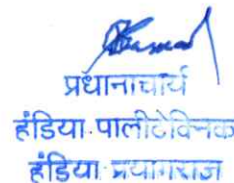 प्रधानाचार्य
हंडिया पालीटेक्निक
हंडिया प्रयागराज